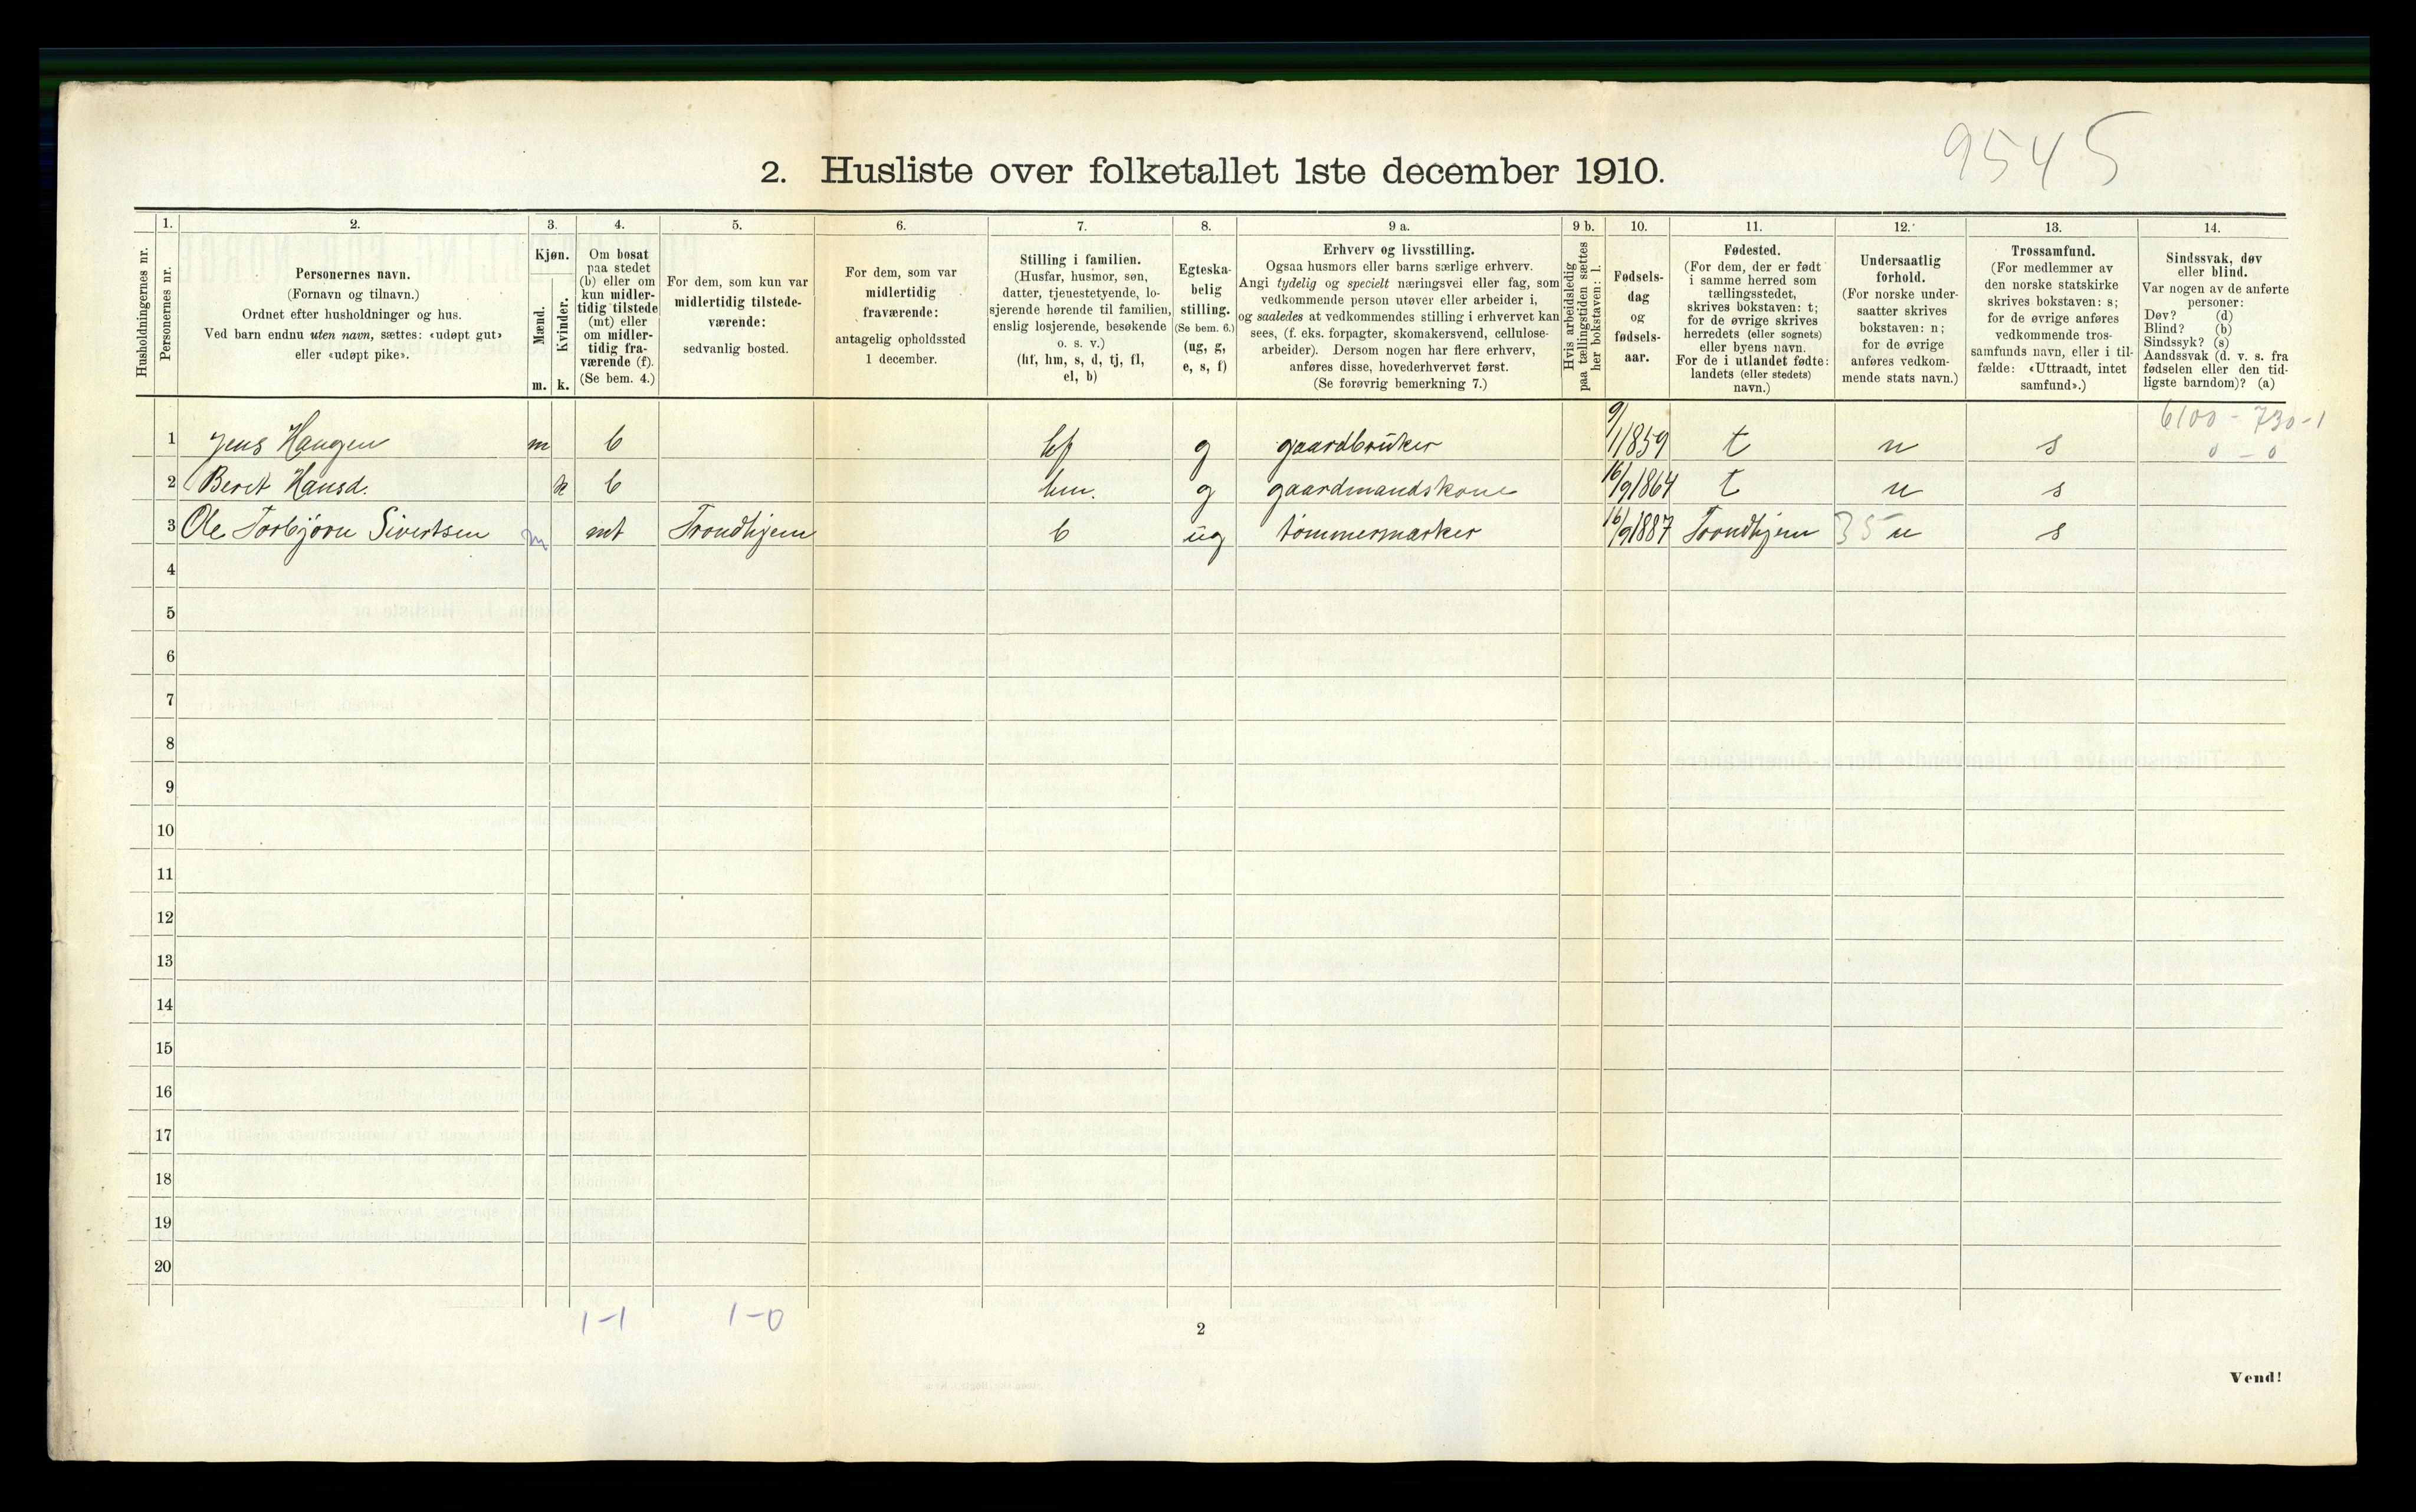 9545
2. Husliste over folketallet 1ste december 1910.
1. 2. 3. 4. 5. 6. 7. 8. 9 a. 9 b. 10. 11. 12. 13. 14.
Husholdningernes nr.
Personernes nr.
Personernes navn.
(Fornavn og tilnavn.)
Ordnet efter husholdninger og hus.
Ved barn endnu uten navn, sættes: «udøpt gut»
eller «udøpt pike».
Kjøn.
Mænd.
Kvinder.
m. k.
Om bosat
paa stedet
(b) eller om
kun midler-
tidig tilstede
(mt) eller
om midler-
tidig fra-
værende (f).
(Se bem. 4.)
For dem, som kun var
midlertidig tilstede-
værende:
sedvanlig bosted.
For dem, som var
midlertidig
fraværende:
antagelig opholdssted
1 december.
Stilling i familien.
(Husfar, husmor, søn,
datter, tjenestetyende, lo-
sjerende hørende til familien,
enslig losjerende, besøkende
o. s. v.)
(hf, hm, s, d, tj, fl,
el, b)
Egteska-
belig
stilling.
(Se bem. 6.)
(ug, g,
e, s, f)
Erhverv og livsstilling.
Ogsaa husmors eller barns særlige erhverv.
Angi tydelig og specielt næringsvei eller fag, som
vedkommende person utøver eller arbeider i,
og saaledes at vedkommendes stilling i erhvervet kan
sees, (f. eks. forpagter, skomakersvend, cellulose-
arbeider). Dersom nogen har flere erhverv,
anføres disse, hovederhvervet først.
(Se forøvrig bemerkning 7.)
Hvis arbeidsledig
paa tællingstiden sættes
her bokstaven: l.
Fødsels-
dag
og
fødsels-
aar.
Fødested.
(For dem, der er født
i samme herred som
tællingsstedet,
skrives bokstaven: t;
for de øvrige skrives
herredets (eller sognets)
eller byens navn.
For de i utlandet fødte:
landets (eller stedets)
navn.)
Undersaatlig
forhold.
(For norske under-
saatter skrives
bokstaven: n;
for de øvrige
anføres vedkom-
mende stats navn.)
Trossamfund.
(For medlemmer av
den norske statskirke
skrives bokstaven: s;
for de øvrige anføres
vedkommende tros-
samfunds navn, eller i til-
fælde: «Uttraadt, intet
samfund».)
Sindssvak, døv
eller blind.
Var nogen av de anførte
personer:
Døv? (d)
Blind? (b)
Sindssyk? (s)
Aandssvak (d. v. s. fra
fødselen eller den tid-
ligste barndom)? (a)
6100 - 730-1
0 - 0
1 Jens Haugen m b hf g gaardbruker 9/1 1859 t n s
2 Beret Hansd. k b hm. g gaardmandskone 16/9 1864 t n s
3 Ole Torbjørn Sivertsen m mt Trondhjem b ug tømmermærker 16/9 1887 Trondhjem 35 n s
4
5
6
7
8
9
10
11
12
13
14
15
16
17
18
19
20
1-1 1-0
2
Vend!